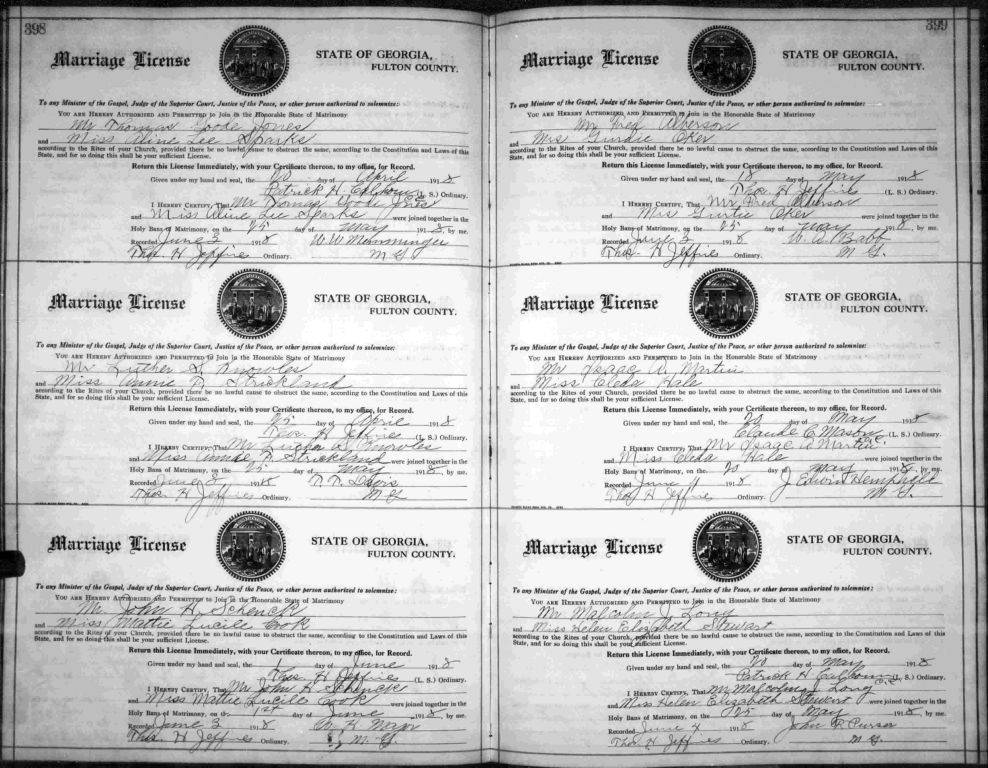 398
Marriage License
STATE OF GEORGIA,
FULTON COUNTY.
To any Minister of the Gospel, Judge of the Superior Court, Justice of the Peace, or other person authorized to solemnize:
YOU ARE HEREBY AUTHORIZED AND PERMITTED to Join in the Honorable State of Matrimony
Mr Thomas Goode Jones
and Miss Aline Lee Sparks
according to the Rites of your Church, provided there be no lawful cause to obstruct the same, according to the Constitution and Laws of this
State, and for so doing this shall be your sufficient License.
Return this License Immediately, with your Certificate thereon, to my office, for Record.
Given under my hand and seal, the 20 day of April 1918
Patrick H Calhoun (L. S.) Ordinary.
I HEREBY CERTIFY, That Mr Thomas Goode Jones
and Miss Aline Lee Sparks were joined together in the
Holy Bans of Matrimony, on the 25 day of May 1918, by me.
Recorded June 3 1918 W. W. Memminger
Thos. H Jeffries Ordinary. M G
Marriage License
STATE OF GEORGIA,
FULTON COUNTY.
To any Minister of the Gospel, Judge of the Superior Court, Justice of the Peace, or other person authorized to solemnize:
YOU ARE HEREBY AUTHORIZED AND PERMITTED to Join in the Honorable State of Matrimony
Mr Luther S. Knowles
and Miss Annie D. Strickland
according to the Rites of your Church, provided there be no lawful cause to obstruct the same, according to the Constitution and Laws of this
State, and for so doing this shall be your sufficient License.
Return this License Immediately, with your Certificate thereon, to my office, for Record.
Given under my hand and seal, the 25 day of April 1918
Thos. H Jeffries (L. S.) Ordinary.
I HEREBY CERTIFY, That Mr Luther S. Knowles
and Miss Annie D. Strickland were joined together in the
Holy Bans of Matrimony, on the 25 day of May 1918, by me.
Recorded June 3 1918 Davis
Thos H Jeffries Ordinary. M G
Marriage License
STATE OF GEORGIA,
FULTON COUNTY.
To any Minister of the Gospel, Judge of the Superior Court, Justice of the Peace, or other person authorized to solemnize:
YOU ARE HEREBY AUTHORIZED AND PERMITTED to Join in the Honorable State of Matrimony
Mr. John H. Schenck
and Miss Mattie Lucile Cook
according to the Rites of your Church, provided there be no lawful cause to obstruct the same, according to the Constitution and Laws of this
State, and for so doing this shall be your sufficient License.
Return this License Immediately, with your Certificate thereon, to my office, for Record.
Given under my hand and seal, the 1 day of June 1918
Thos. H Jeffries (L. S.) Ordinary.
I HEREBY CERTIFY, That Mr John H Schenck
and Miss Mattie Lucile Cook were joined together in the
Holy Bans of Matrimony, on the 1st day of June 1918, by me.
Recorded June 3 1918 H. Major
Thos. H Jeffries Ordinary. M. G.
399
Marriage License
STATE OF GEORGIA,
FULTON COUNTY.
To any Minister of the Gospel, Judge of the Superior Court, Justice of the Peace, or other person authorized to solemnize:
YOU ARE HEREBY AUTHORIZED AND PERMITTED to Join in the Honorable State of Matrimony
Mr Fred Alverson
and Mrs Gurtie Oker
according to the Rites of your Church, provided there be no lawful cause to obstruct the same, according to the Constitution and Laws of this
State, and for so doing this shall be your sufficient License.
Return this License Immediately, with your Certificate thereon, to my office, for Record.
Given under my hand and seal, the 18 day of May 1918
Thos. H Jeffries (L. S.) Ordinary.
I HEREBY CERTIFY, That Mr Fred Alverson
and Mrs Gurtie Oker were joined together in the
Holy Bans of Matrimony, on the 25 day of May 1918, by me.
Recorded June 3 1918 Babb
Thos. H Jeffries Ordinary. M G.
Marriage License
STATE OF GEORGIA,
FULTON COUNTY.
To any Minister of the Gospel, Judge of the Superior Court, Justice of the Peace, or other person authorized to solemnize:
YOU ARE HEREBY AUTHORIZED AND PERMITTED to Join in the Honorable State of Matrimony
Mr Isaac A. Martin
and Miss Cleda Hale
according to the Rites of your Church, provided there be no lawful cause to obstruct the same, according to the Constitution and Laws of this
State, and for so doing this shall be your sufficient License.
Return this License Immediately, with your Certificate thereon, to my office, for Record.
Given under my hand and seal, the 20 day of May 1918
Claude C. Mason (L. S.) Ordinary.
I HEREBY CERTIFY, That Mr Isaac A Martin
and Miss Cleda Hale were joined together in the
Holy Bans of Matrimony, on the 20 day of May 1918, by me.
Recorded June 4 1918 J Edwin Hemphill
Thos H Jeffries Ordinary. M G.
Marriage License
STATE OF GEORGIA,
FULTON COUNTY.
To any Minister of the Gospel, Judge of the Superior Court, Justice of the Peace, or other person authorized to solemnize:
YOU ARE HEREBY AUTHORIZED AND PERMITTED to Join in the Honorable State of Matrimony
Mr Malcolm J Long
and Miss Helen Elizabeth Stewart
according to the Rites of your Church, provided there be no lawful cause to obstruct the same, according to the Constitution and Laws of this
State, and for so doing this shall be your sufficient License.
Return this License Immediately, with your Certificate thereon, to my office, for Record.
Given under my hand and seal, the 20 day of May 1918
Patrick H Calhoun (L. S.) Ordinary.
I HEREBY CERTIFY, That Mr Malcolm J. Long
and Miss Helen Elizabeth Stewart were joined together in the
Holy Bans of Matrimony, on the 25 day of May 1918, by me.
Recorded June 4 1918 John R Purser
Thos H Jeffries Ordinary. M G.